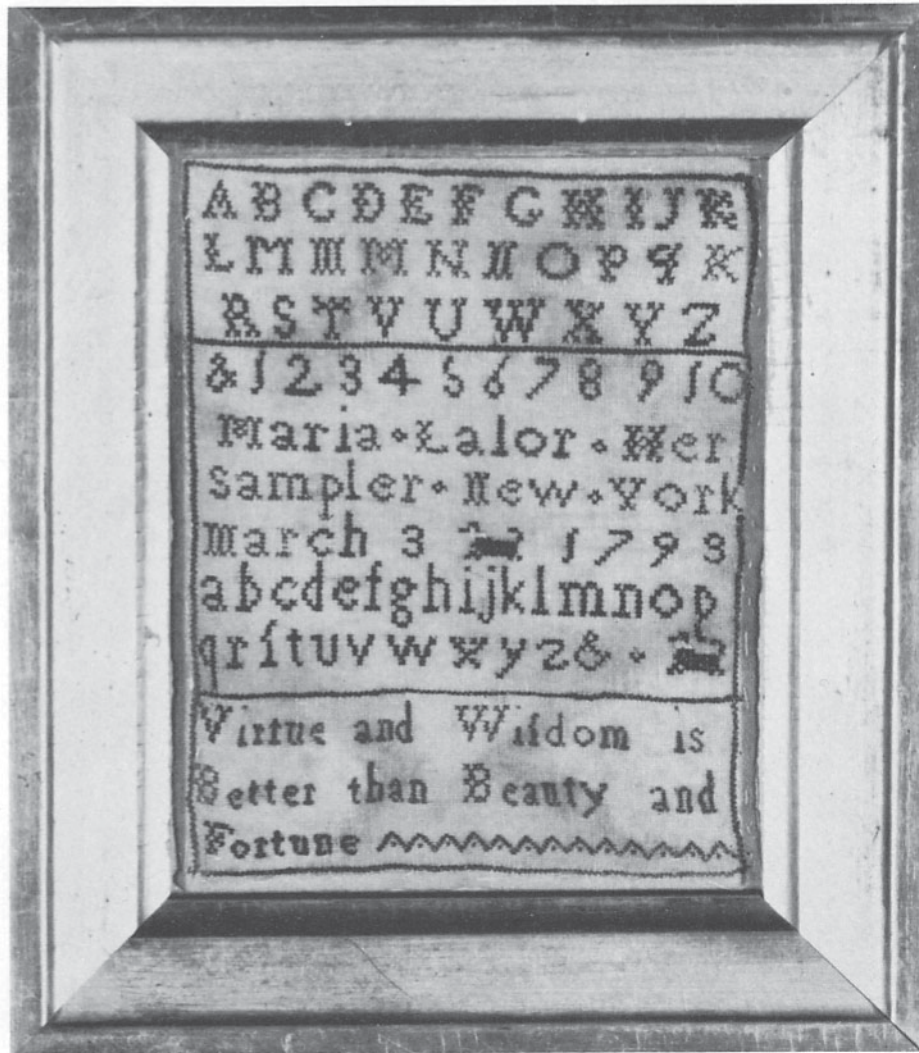 A B C D E F G H I J K
L M M M N N O P q K
R S T V U W X Y Z
& 1 2 3 4 5 6 7 8 9 10
Maria Lalor Her
Sampler New York
March 3 1793
abcdefghijklmnop
qrſtuvwxyz&
Virtue and Wiſdom is
Better than Beauty and
Fortune